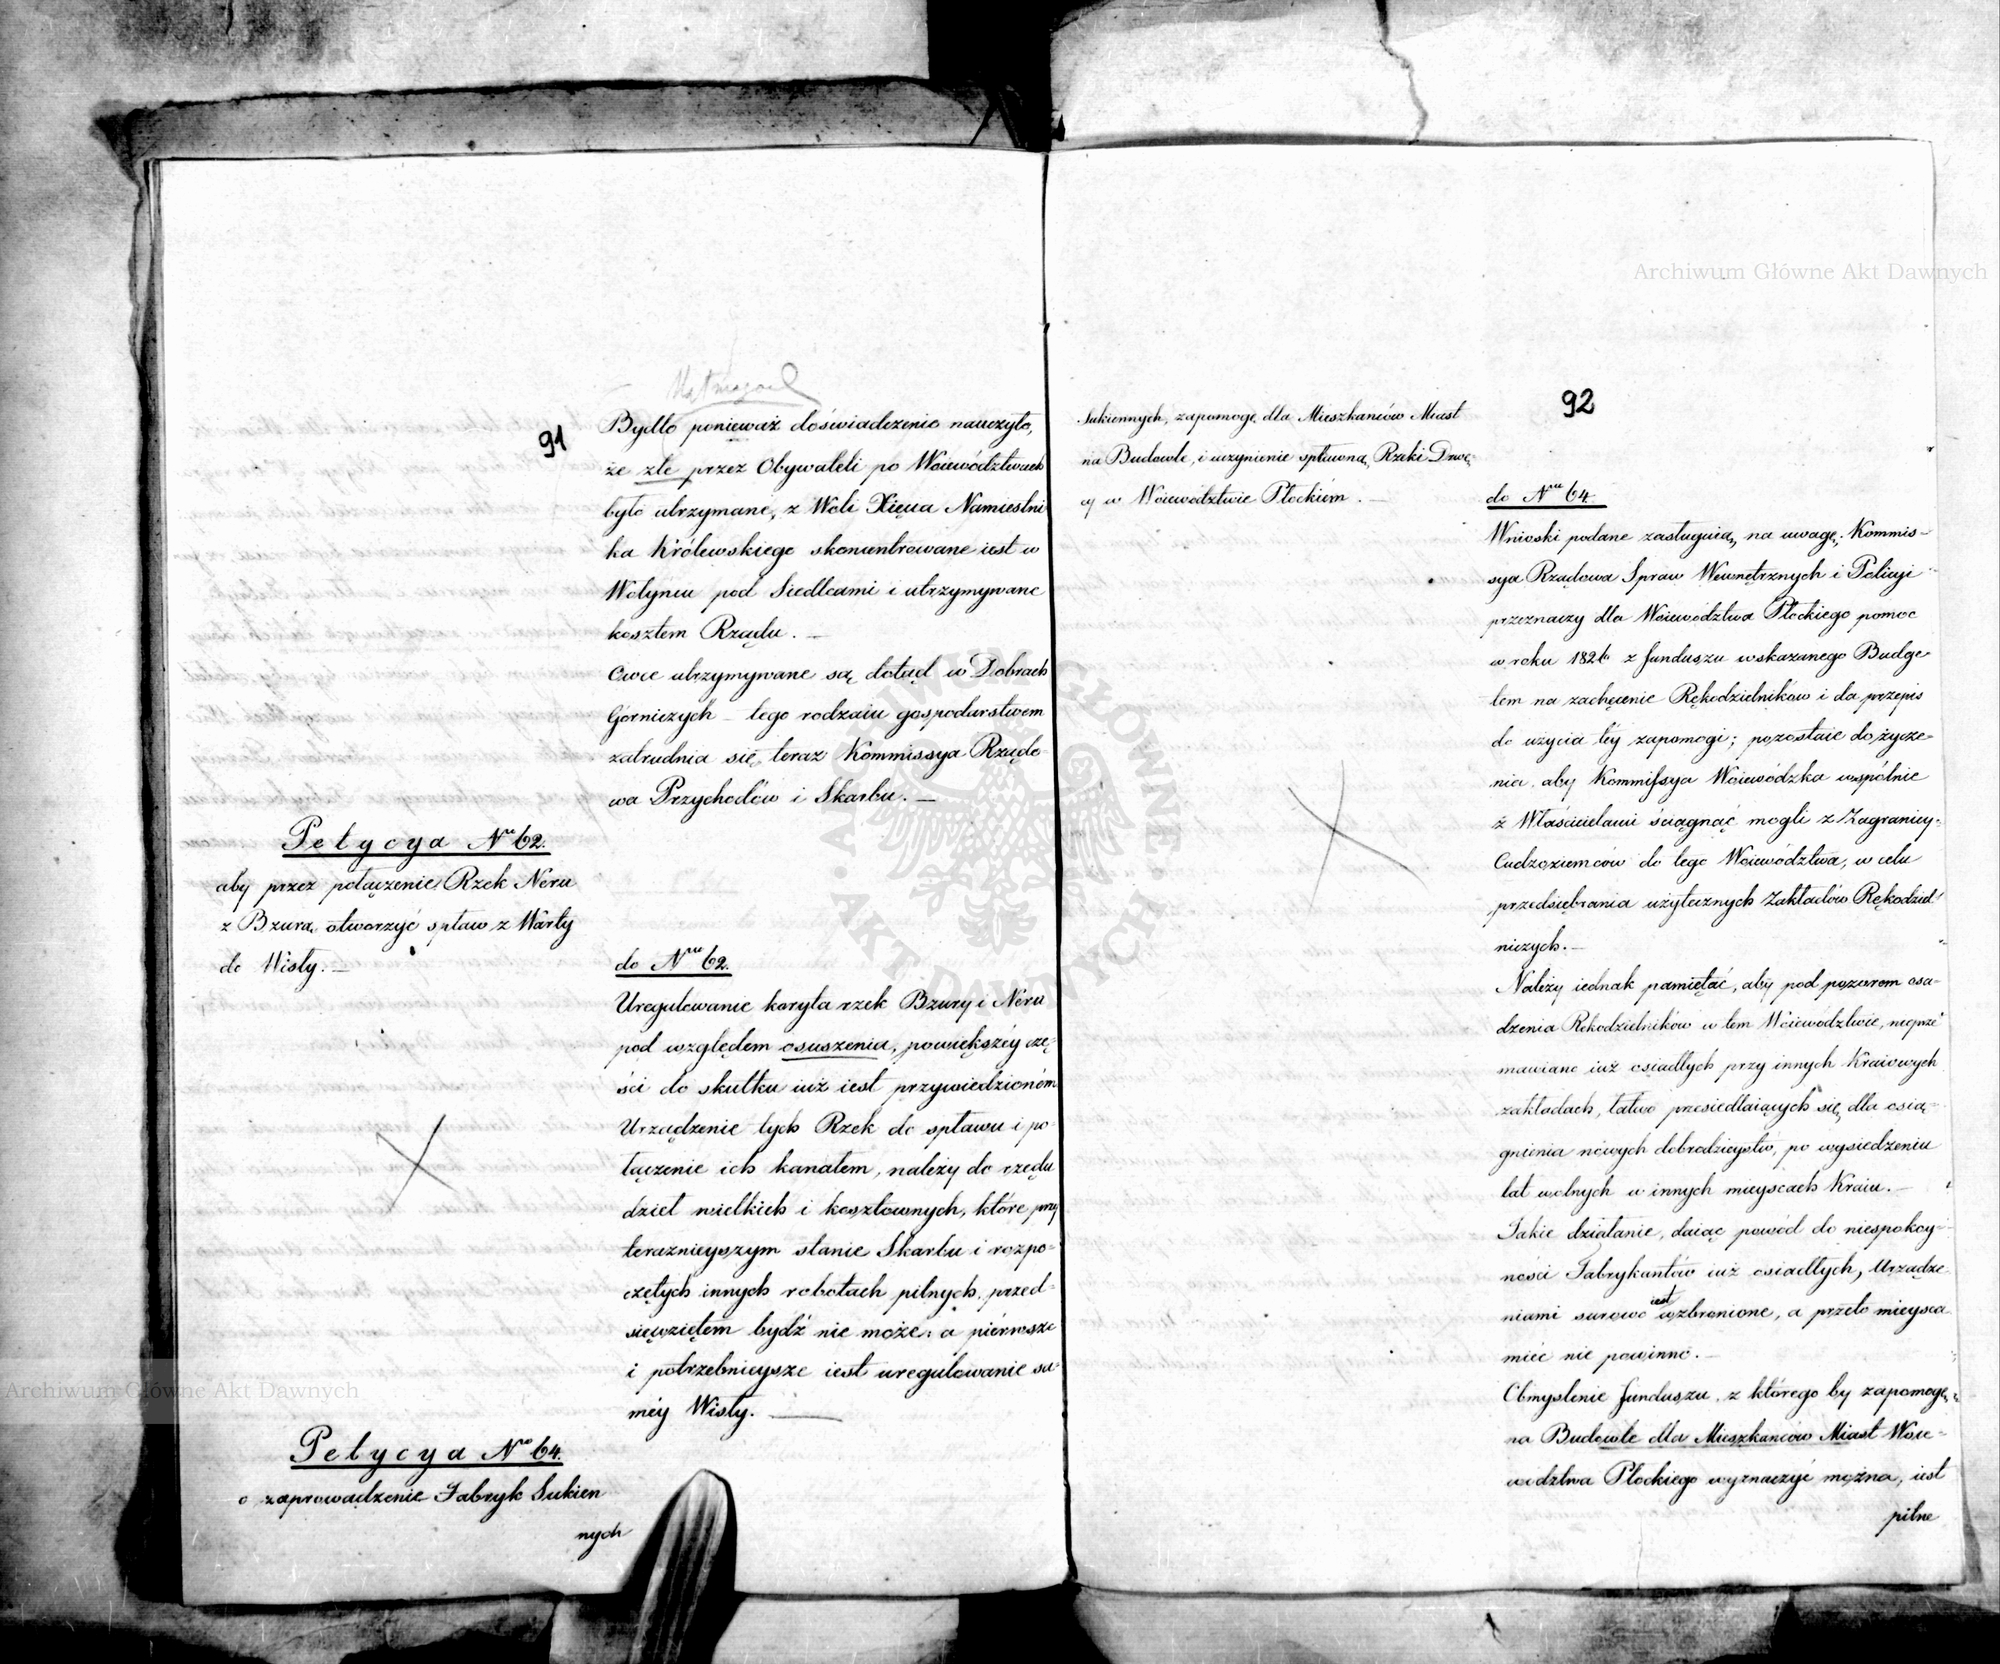 91
Bydło ponieważ doświadczenie nauczyło,
że złe przez Obywateli po Woiewództwach
było utrzymane, z Woli Xięcia Namiestni
ka Królewskiego skoncentrowane iest w
Wołyniu pod Siedlcami i utrzymywane
kosztem Rządu. —
Owce utrzymywane są dotąd w Dobrach
Górniczych – tego rodzaiu gospodarstwem
zatrudnia się teraz Kommissya Rządo
wa Przychodów i Skarbu. —
Petycya Nro 62.
aby przez połączenie Rzek Neru
z Bzurą, otworzyć spław z Warty
do Wisły. —
do Nru 62.
Uregulowanie koryta rzek Bzury i Neru
pod względem osuszenia, powiększéy czę-
ści do skutku iuż iest przywiedzioném
Urządzenie tych Rzek do spławu i po-
łączenie ich kanałem, należy do rzędu
dzieł wielkich i kosztownych, które przy
teraznieyszym stanie Skarbu i rozpo-
czętych innych robotach pilnych, przed-
sięwziętem bydź nie może; a piérwsze
i potrzebnieysze iest uregulowanie sa-
méy Wisły. —
Petycya Nro 64.
o zaprowadzenie Fabryk Sukien
nych
92
Sukiennych, zapomogę dla Mieszkańców Miast
na Budowle, i uczynienie spławną Rzeki Drwę-
cy w Woiewództwie Płockiém. —
do Nru 64.
Wnioski podane zasługuią na uwagę. Kommis-
sya Rządowa Spraw Wewnętrznych i Policyi
przeznaczy dla Woiewództwa Płockiego pomoc
w roku 1826 z funduszu wskazanego Budge-
tem na zachęcenie Rękodzielników i da przepis
do użycia téy zapomogi; pozostaie do życze-
nia, aby Kommissya Woiewódzka wspólnie
z Właścicielami ściągnąć mogli z Zagranicy
Cudzoziemców do tego Woiewództwa, w celu
przedsiębrania użytecznych Zakładów Rękodziel-
niczych. —
Należy iednak pamiętać, aby pod pozorem osa-
dzenia Rękodzielników w tem Woiewodztwie, nieprze
mawiano iuż osiadłych przy innych Kraiowych
zakładach, łatwo przesiedlaiących się dla osią-
gnienia nowych dobrodzieystw, po wysiedzeniu
lat wolnych w innych mieyscach Kraiu. —
Takie działanie, daiąc powód do niespokoy-
ności Fabrykantów iuż osiadłych, Urządze-
niami surowo iest wzbronione, a przeto mieysca
mieć nie powinno. —
Obmyślenie funduszu, z którego by zapomogę
na Budowle dla Mieszkańców Miast Woie-
wództwa Płockiego wyznaczyć można, iest
pilne
Archiwum Główne Akt Dawnych
Archiwum Główne Akt Dawnych
ARCHIWUM GŁÓWNE AKT DAWNYCH